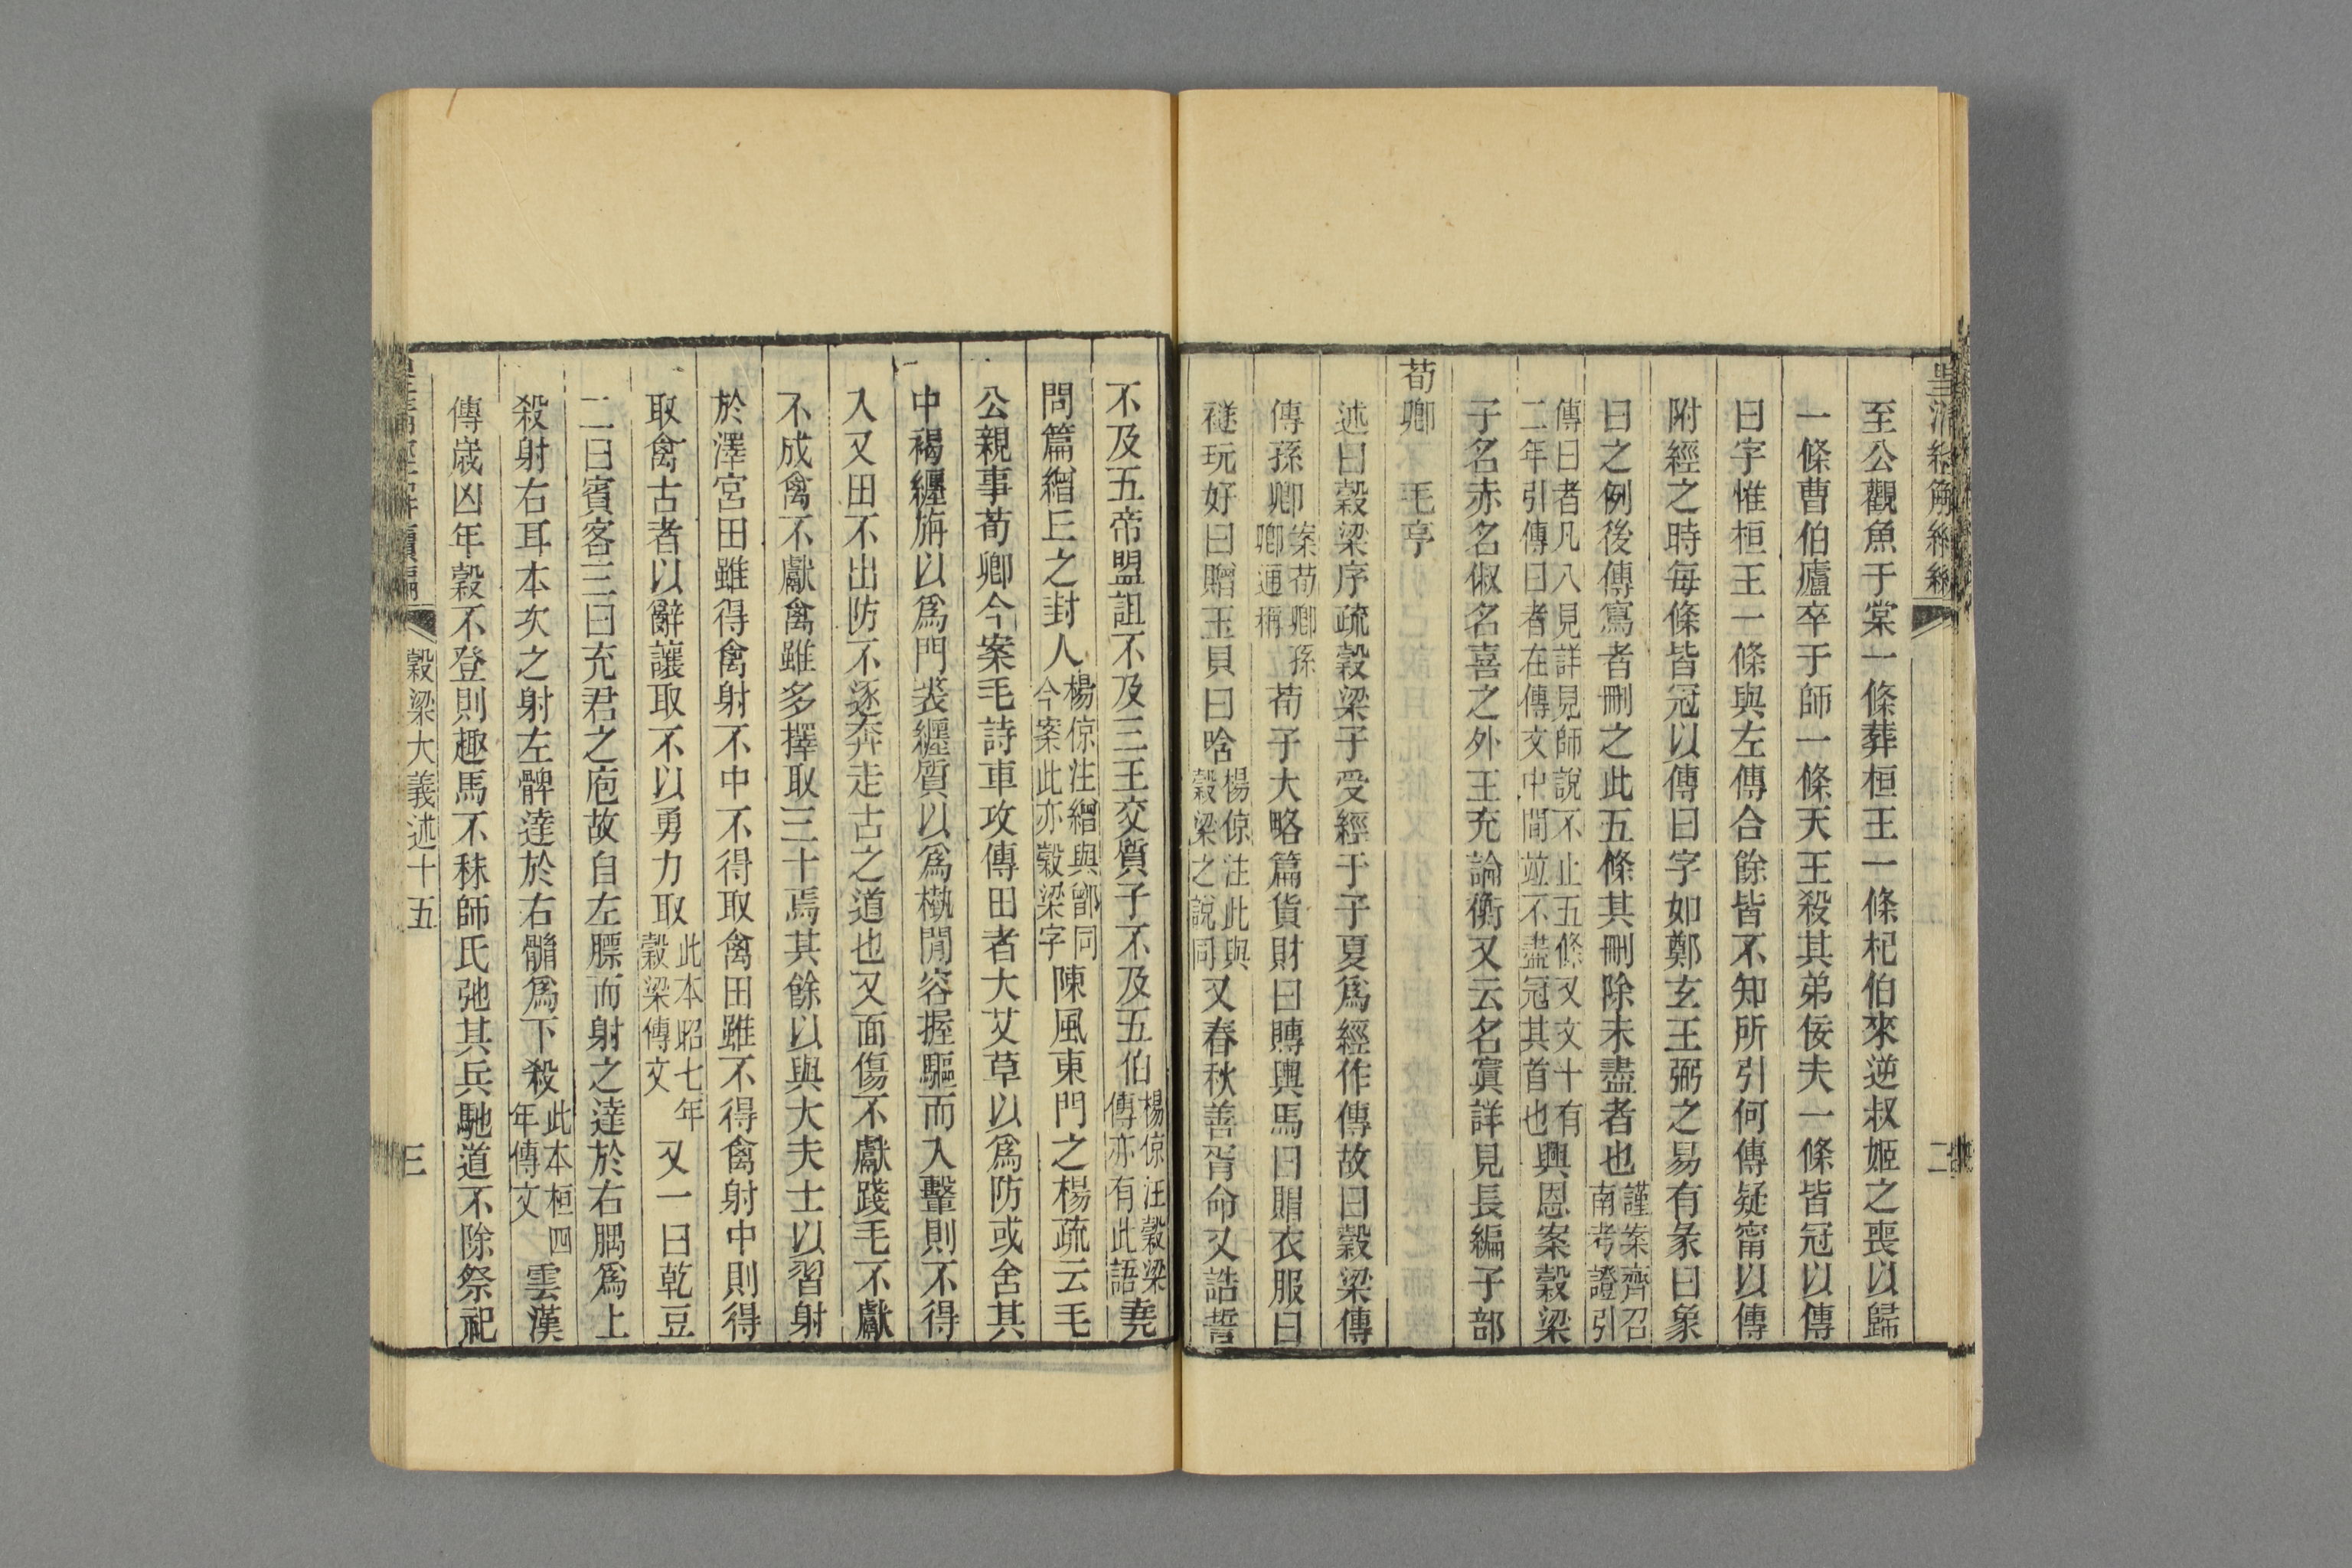 至公觀魚于棠一條葬桓王一條杞伯來逆叔姬之喪以歸
一條曹伯廬卒于師一條天王殺其弟佞夫一條皆冠以傳
曰字惟桓王一條與左傳合餘皆不知所引何傳疑甯以傳
附經之時每條皆冠以傳曰字如鄭玄王弼之易有彖曰象
曰之例後傳寫者刪之此五條其刪除未盡者也謹案齊召南考證引
傳曰者凡八見詳見師說不止五條又文十有二年引傳曰者在傳文中閒竝不盡冠其首也興恩案穀梁
子名赤名俶名喜之外王充論衡又云名寘詳見長編子部
荀卿 毛亨
述曰穀梁序疏穀梁子受經于子夏爲經作傳故曰穀梁傳
傳孫卿案荀卿孫卿通稱荀子大略篇貨財曰賻輿馬曰賵衣服曰
襚玩好曰贈玉貝曰唅楊倞注此與穀梁之說同又春秋善胥命又誥誓
二
不及五帝盟詛不及三王交質子不及五伯楊倞注穀梁傳亦有此語堯
問篇繒丘之封人楊倞注繒與鄫同今案此亦穀梁字陳風東門之楊疏云毛
公親事荀卿今案毛詩車攻傳田者大艾草以爲防或舍其
中褐纏旃以爲門裘纏質以爲槸閒容握驅而入轚則不得
入又田不出防不逐奔走古之道也又面傷不獻踐毛不獻
不成禽不獻禽雖多擇取三十焉其餘以與大夫士以習射
於澤宮田雖得禽射不中不得取禽田雖不得禽射中則得
取禽古者以辭讓取不以勇力取此本昭七年穀梁傳文又一曰乾豆
二曰賓客三曰充君之庖故自左膘而射之達於右腢爲上
殺射右耳本次之射左髀達於右䯚爲下殺此本桓四年傳文雲漢
傳歲凶年穀不登則趣馬不秣師氏弛其兵馳道不除祭祀
穀梁大義述十五
三